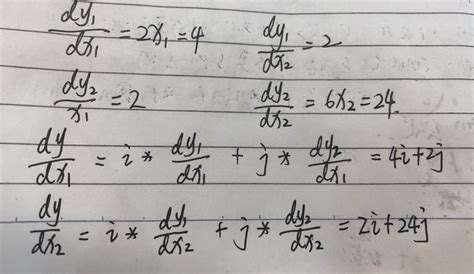 dy₁/dx₁ = 2x₁ = 4 dy₁/dx₂ = 2
dy₂/x₁ = 2 dy₂/dx₂ = 6x₂ = 24
dy/dx₁ = i * dy₁/dx₁ + j * dy₂/dx₁ = 4i+2j
dy/dx₂ = i * dy₁/dx₂ + j * dy₂/dx₂ = 2i+24j